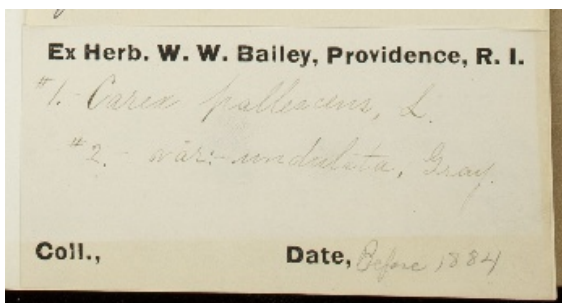 Ex Herb. W. W. Bailey, Providence, R. I.
#1. Carex pallescens, L.
#2. - var:- undulata, Gray.
Coll., Date, Before 1884